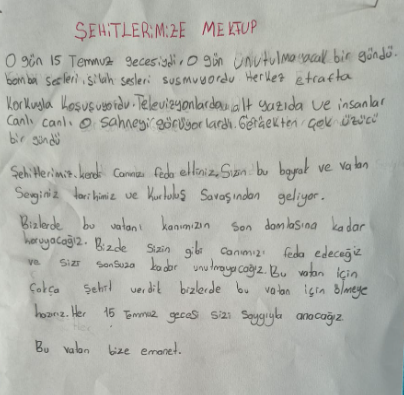 ŞEHİTLERİMİZE MEKTUP
O gün 15 Temmuz gecesiydi, O gün Unutulmayacak bir gündü.
bomba sesleri, silah sesleri susmuyordu Herkez etrafta
Korkuyla Koşuşuyordu. Televizyonlardan alt yazıda ve insanlar
Canlı canlı O sahneyi görüyorlardı. Gerçekten çok üzücü
bir gündü
Şehitlerimiz canınızı feda ettiniz. Sizin bu bayrak ve vatan
Sevginiz tarihimiz ve Kurtuluş Savaşından geliyor.
Bizlerde bu vatanı kanımızın son damlasına kadar
koruyacağız. Bizde Sizin gibi Canımızı feda edeceğiz
ve sizi sonsuza kadar unutmayacağız. Bu vatan için
Çokça şehit verdik bizlerde bu vatan için ölmeye
hazırız. Her 15 Temmuz gecesi sizi Saygıyla anacağız
Bu vatan bize emanet.